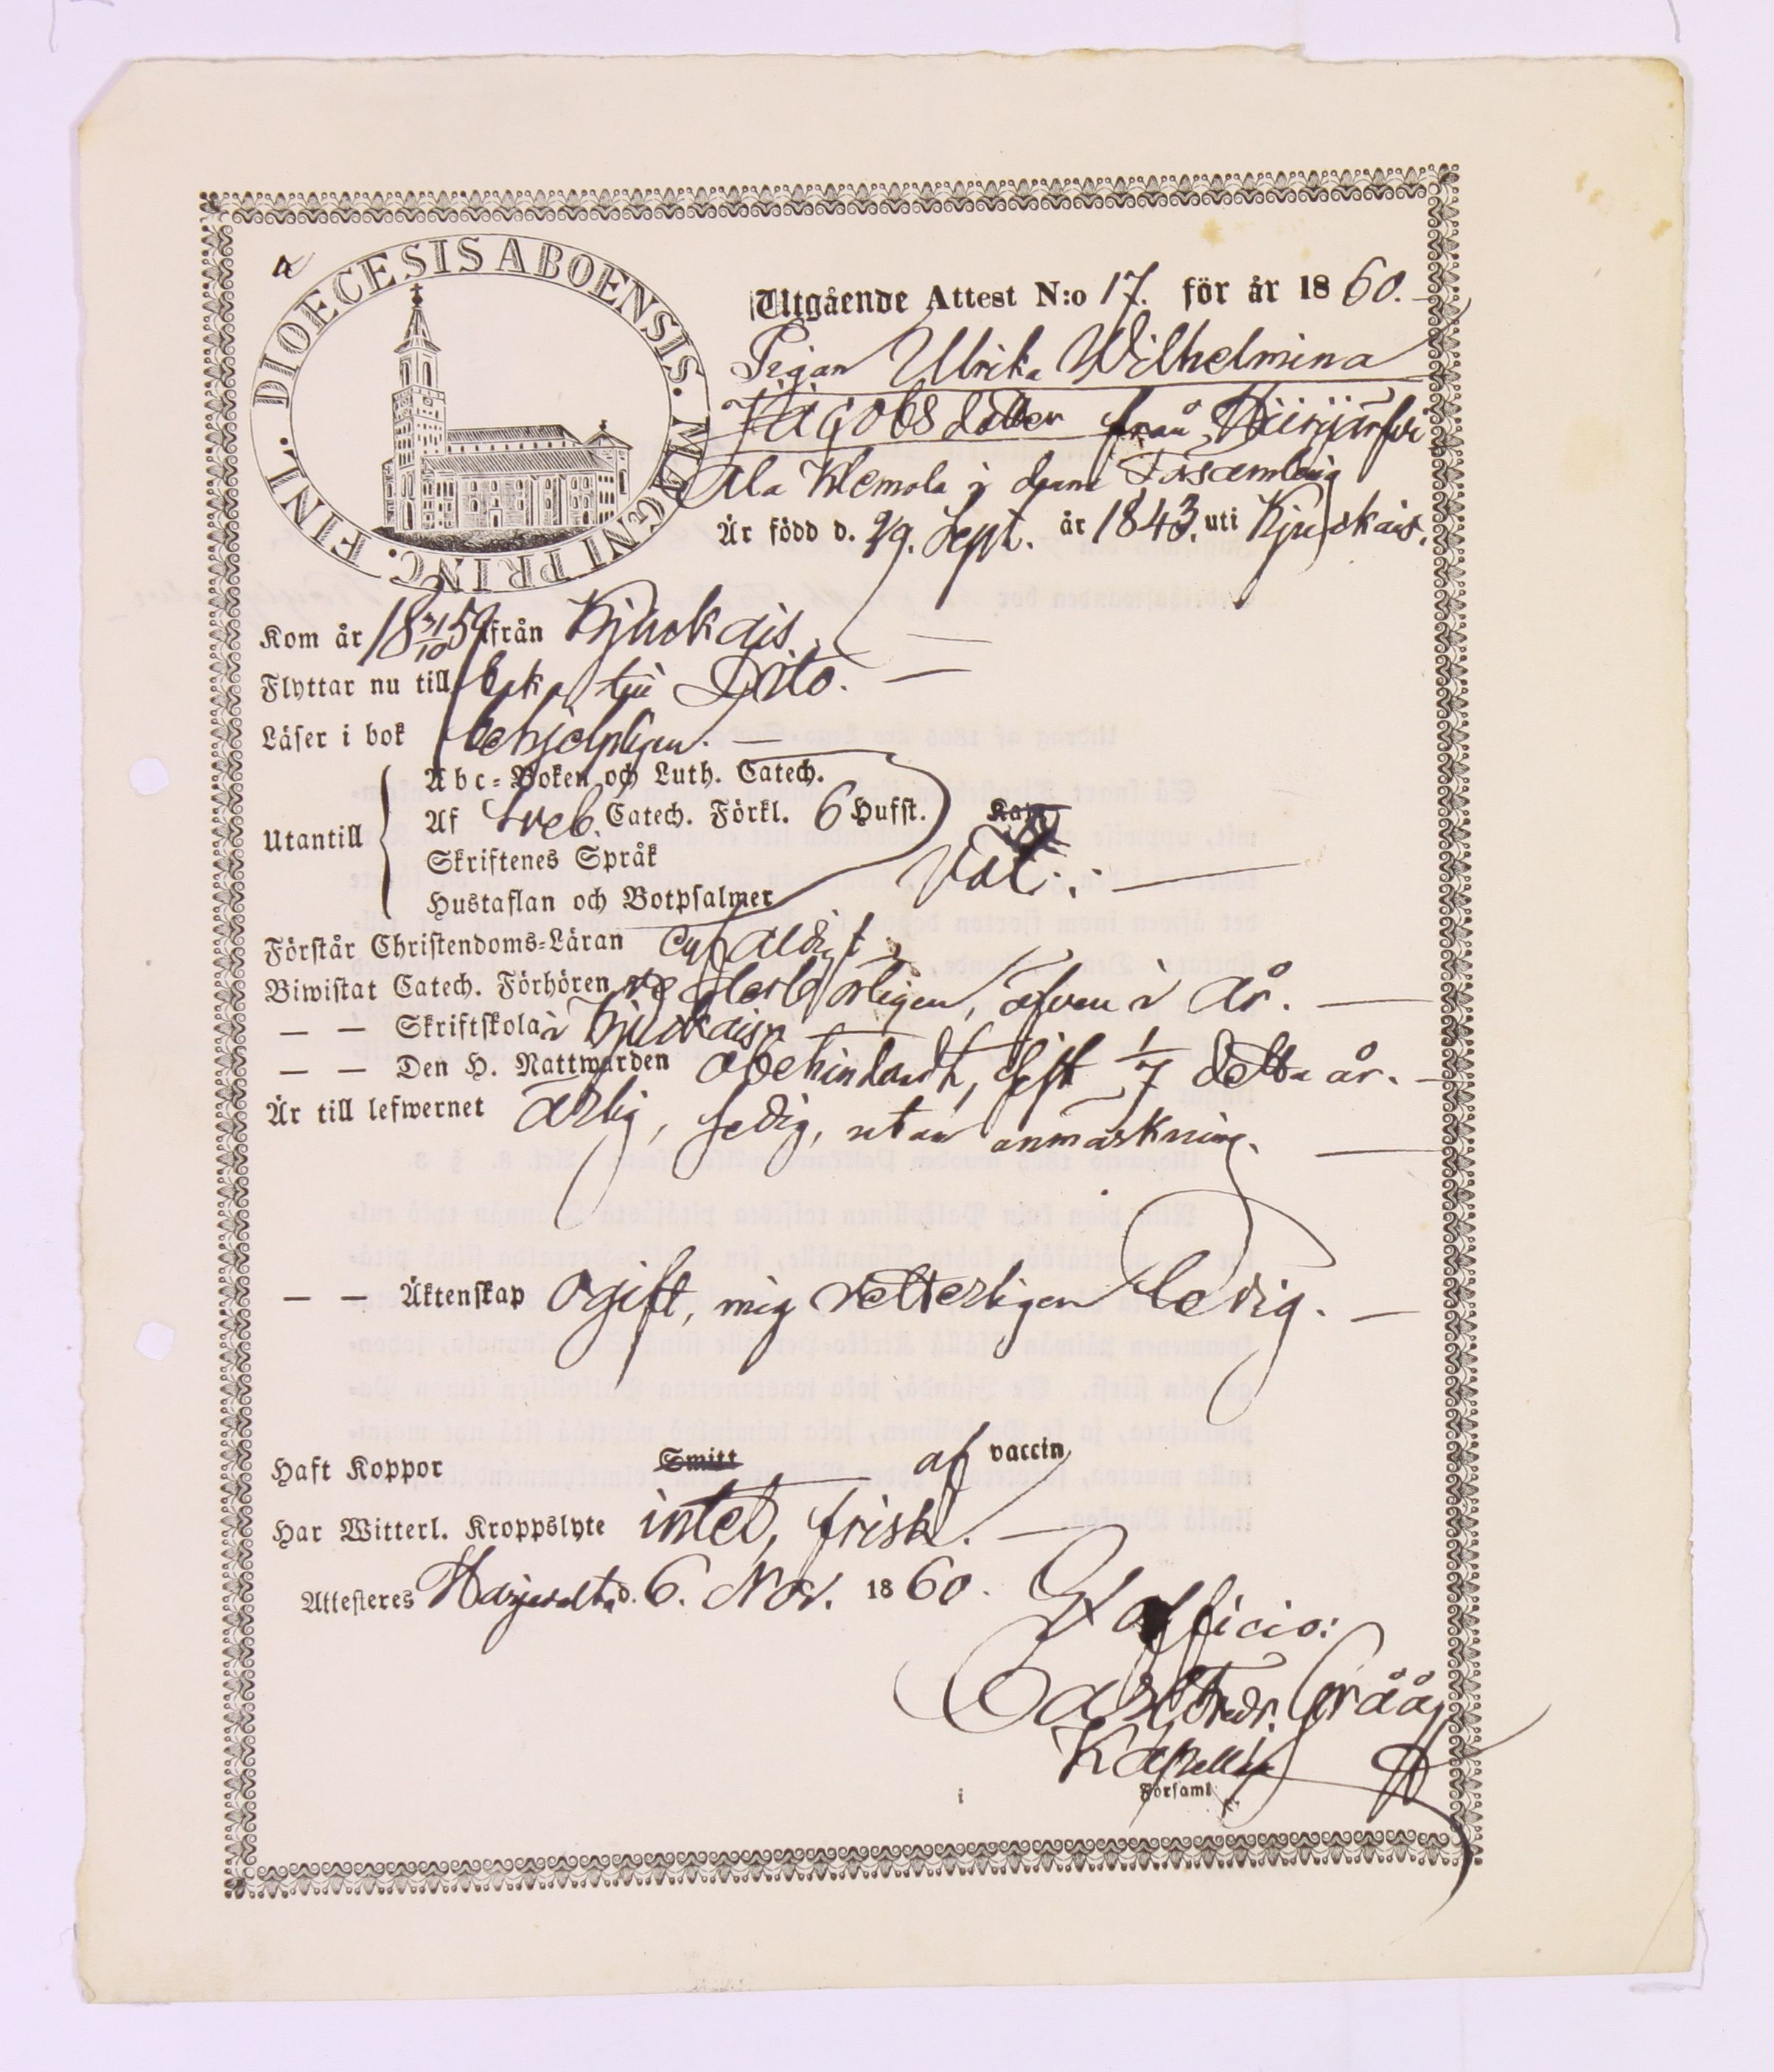 DIOECESIS ABOENSIS. MAGNI PRINC. FINL.
Utgående Attest N:o 17. för år 1860.
Pigan Ulrika Wilhelmina
Jacobsdotter från Hiirijärfvi
Ala Klemola i denna Församling
Är född d. 29. Sept. år 1843. uti Kjuokais.
Kom år 18 31/10 59 från Kjuokais.
Flyttar nu till baka till Dito.
Läser i bok behjelpligen.
Abc-Boken och Luth. Catech.
Utantill Af Sveb. Catech. Förkl. 6 Hufst.
Skriftenes Språk
Hustaflan och Botpsalmer
Förstår Christendoms-Läran enfaldigt
Biwistat Catech. Förhören ordentligen, äfven i år.
— — Skriftskola i Kjuokais
— — Den H. Nattwarden obehindradt, sist 1/7 detta år.
Är till lefwernet ärlig, sedig, utan anmärkning.
— — Äktenskap ogift, mig vetterligen ledig.
Haft Koppor Smitt af vaccin
Har Witterl. Kroppslyte intet, frisk.
Attesteres Harjavalta d. 6. Nov. 1860.
Ex officio:
Carl Fredr. Gråå
Kapellan
i Församl